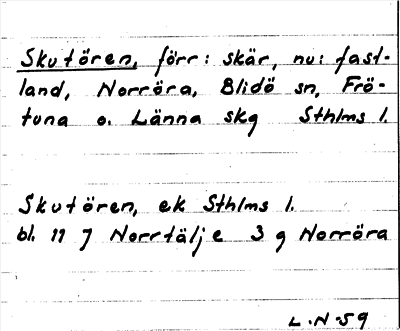 Skutören, förr: skär, nu: fast-
land, Norröra, Blidö sn, Frö-
tuna o. Länna skg Sthlms l.
Skutören, ek Sthlms l.
bl. 11 7 Norrtälje 3 g Norröra
L.N-59